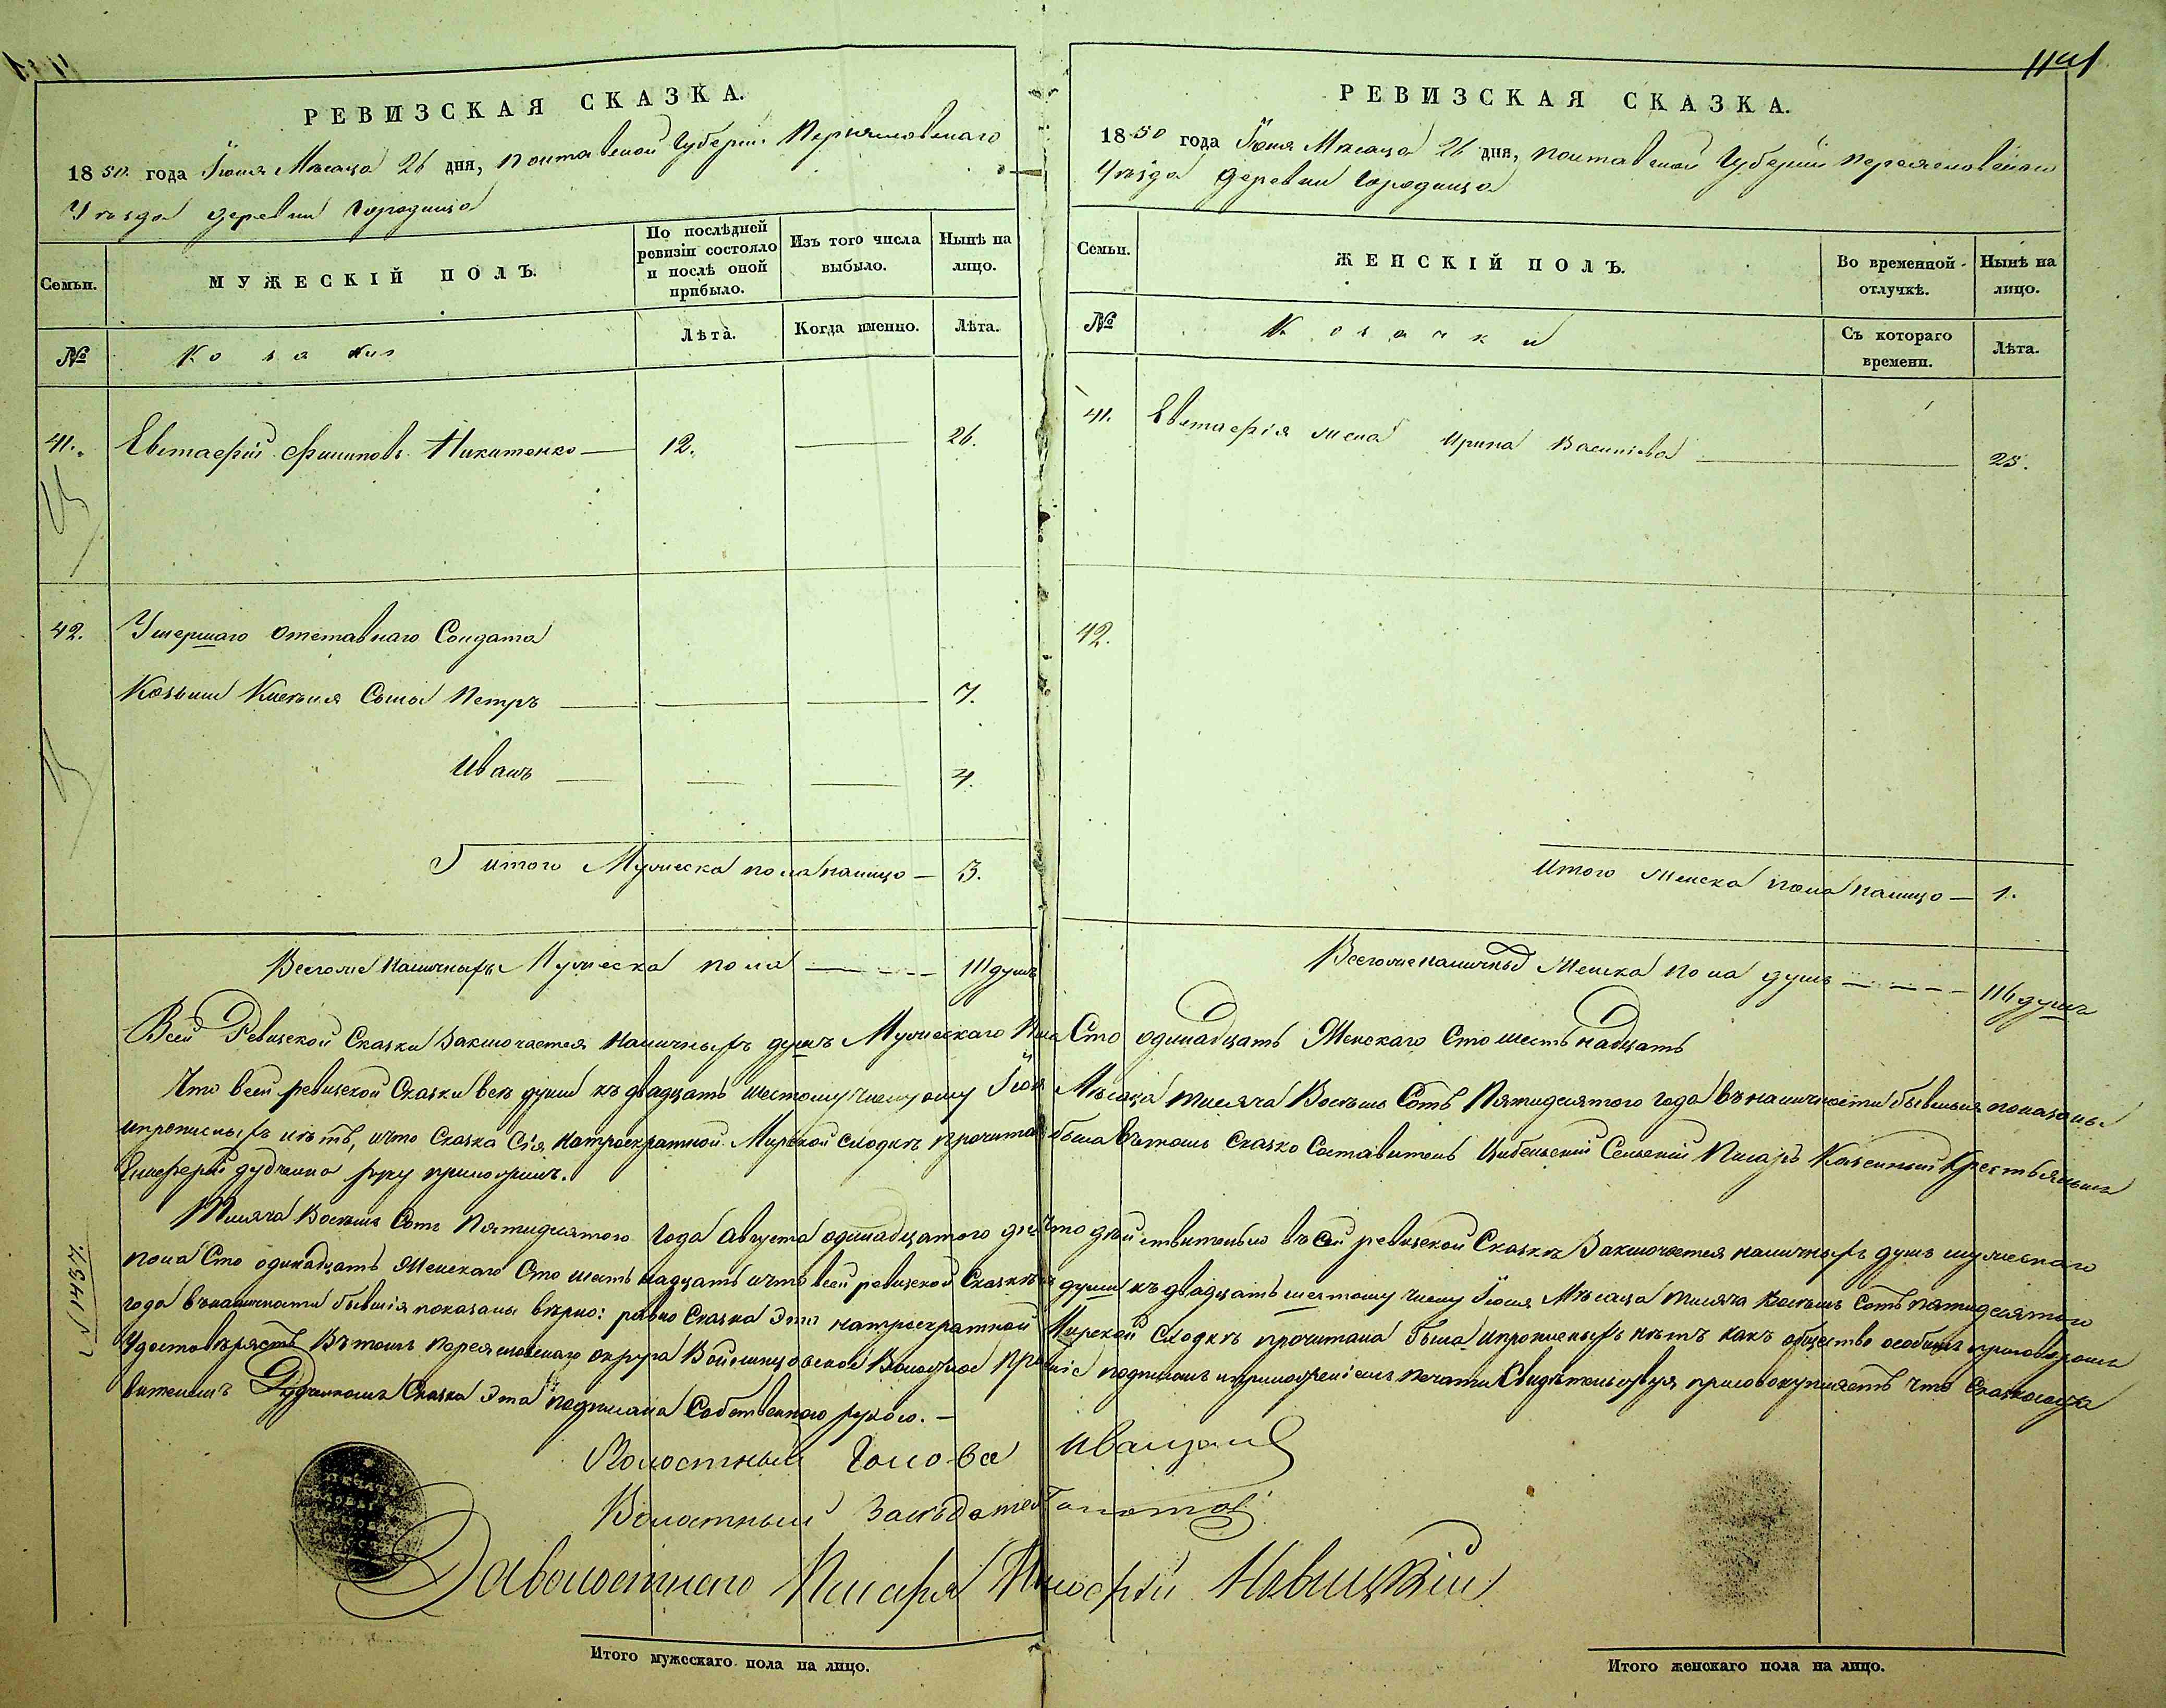 1141
РЕВИЗСКАЯ СКАЗКА.
1850 года Іюня Мѣсяца 26 дня, Полтавской Губерніи Переяславскаго
Уѣзда деревни Городища
Семьи.
МУЖЕСКІЙ ПОЛЪ.
По послѣдней ревизіи состояло и послѣ оной прибыло.
Изъ того числа выбыло.
Нынѣ на лицо.
№
Козаки
Лѣта.
Когда именно.
Лѣта.
41. Евстафій Филиповъ Никитенко — 12. — 26.
42. Умершаго отставнаго Солдата
Козьми Сына Петръ — — — 7.
Иванъ — — — 4.
Итого Мужеска пола налицо — 3.
Всего же наличныхъ Мужеска пола — 111 душъ
РЕВИЗСКАЯ СКАЗКА.
1850 года Іюня Мѣсяца 26 дня, Полтавской Губерніи Переяславскаго
Уѣзда деревни Городища
Семьи.
ЖЕНСКІЙ ПОЛЪ.
Во временной отлучкѣ.
Нынѣ на лицо.
№
Козачки
Съ котораго времени.
Лѣта.
41. Евстафія жена Ирина Васильева — — 25.
42.
Итого Женска пола налицо — 1.
Всего же наличныхъ Женска пола душъ — 116 душъ
Всей Ревизской Сказки Заключается наличныхъ душъ Мужескаго пола Сто одинадцать Женскаго Сто шестьнадцать
Что всей ревизской Сказки всѣ души къ двадцать шестому числу Іюня Мѣсяца тысяча Восемь Сотъ Пятидесятого года въ наличности бывшія показаны
и прописныхъ нѣтъ, и что Сказка Сія на троекратной Мирской сходкѣ прочитана была въ томъ Сказко Составитель Цибельскій Сельскій Писарь Казенный Крестьянинъ
Дудченко руку приложилъ.
Тысяча Восемь Сотъ Пятидесятого года Августа одинадцатого дня что дѣйствительно въ сей ревизской Сказкѣ Заключается наличныхъ душъ мужескаго
пола Сто одинадцать Женскаго Сто шестьнадцать и что всей ревизской Сказкѣ души къ двадцать шестому числу Іюня Мѣсяца тысяча Восемь Сотъ пятидесятого
года въ наличности бывшія показаны вѣрно: равно Сказка эта на троекратной Мирской Сходкѣ прочитана была и прописныхъ нѣтъ какъ общество особымъ приговоромъ
удостовѣряетъ Въ томъ Переяславскаго округа Войтовицкое Волостное Правленіе подписомъ и приложеніемъ печати Свидѣтельствуя присовокупляетъ что Сказкососта
вителемъ Дудченкомъ Сказка Эта подписана Собственною рукою.—
Волостный Голова
Волостный Засѣдатель
За волостнаго Писаря Новицкій
№ 1341
Итого мужескаго пола на лицо.
Итого женскаго пола на лицо.